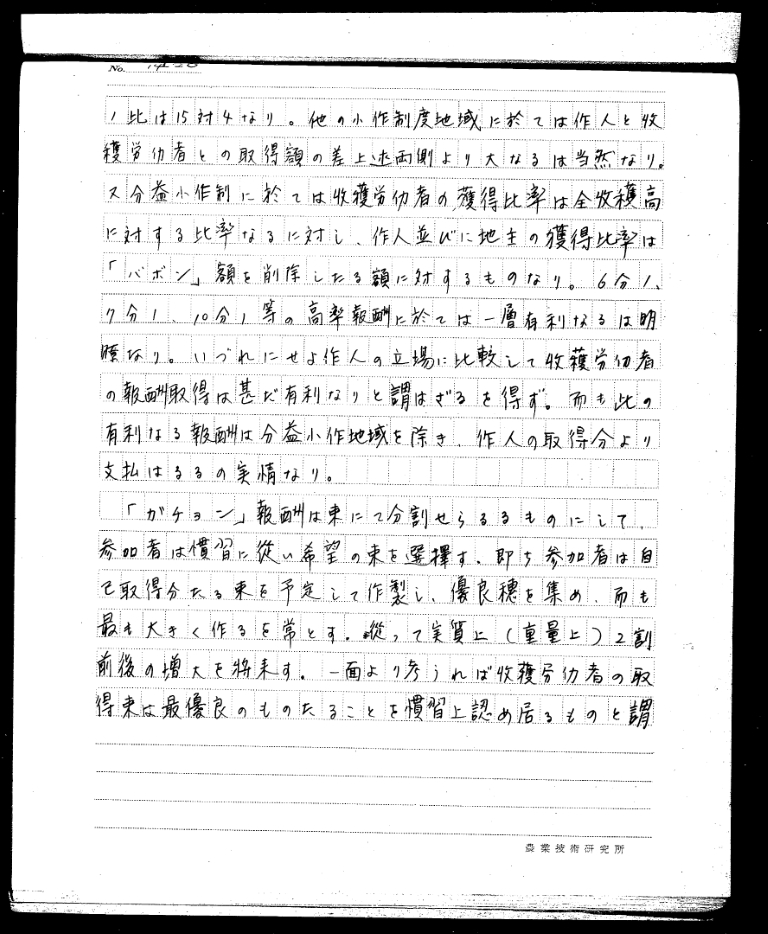 No.
ノ比は15対4なり。他の小作制度地域に於ては作人と收
穫労仂者との取得額の差上述両側より大なるは当然なり。
又分益小作制に於ては收穫労仂者の獲得比率は全收穫高
に対する比率なるに対し、作人並びに地主の獲得比率は
「バボン」額を削除したる額に対するものなり。6分1、
7分1、10分1等の高率報酬に於ては一層有利なるは明
瞭なり。いづれにせよ作人の立場に比較して收穫労仂者
の報酬取得は甚だ有利なりと謂はざるを得ず。而も此の
有利なる報酬は分益小作地域を除き、作人の取得分より
支払はるるの実情なり。
「ガチョン」報酬は束にて分割せらるるものにして、
参加者は慣習に従い希望の束を選擇す、即ち参加者は自
己取得分たる束を予定して作製し、優良穂を集め、而も
最も大きく作るを常とす。從って実質上(重量上)2割
前後の増大を将来す。一面より考うれば收穫労仂者の取
得束は最優良のものたることを慣習上認め居るものと謂
農業技術研究所